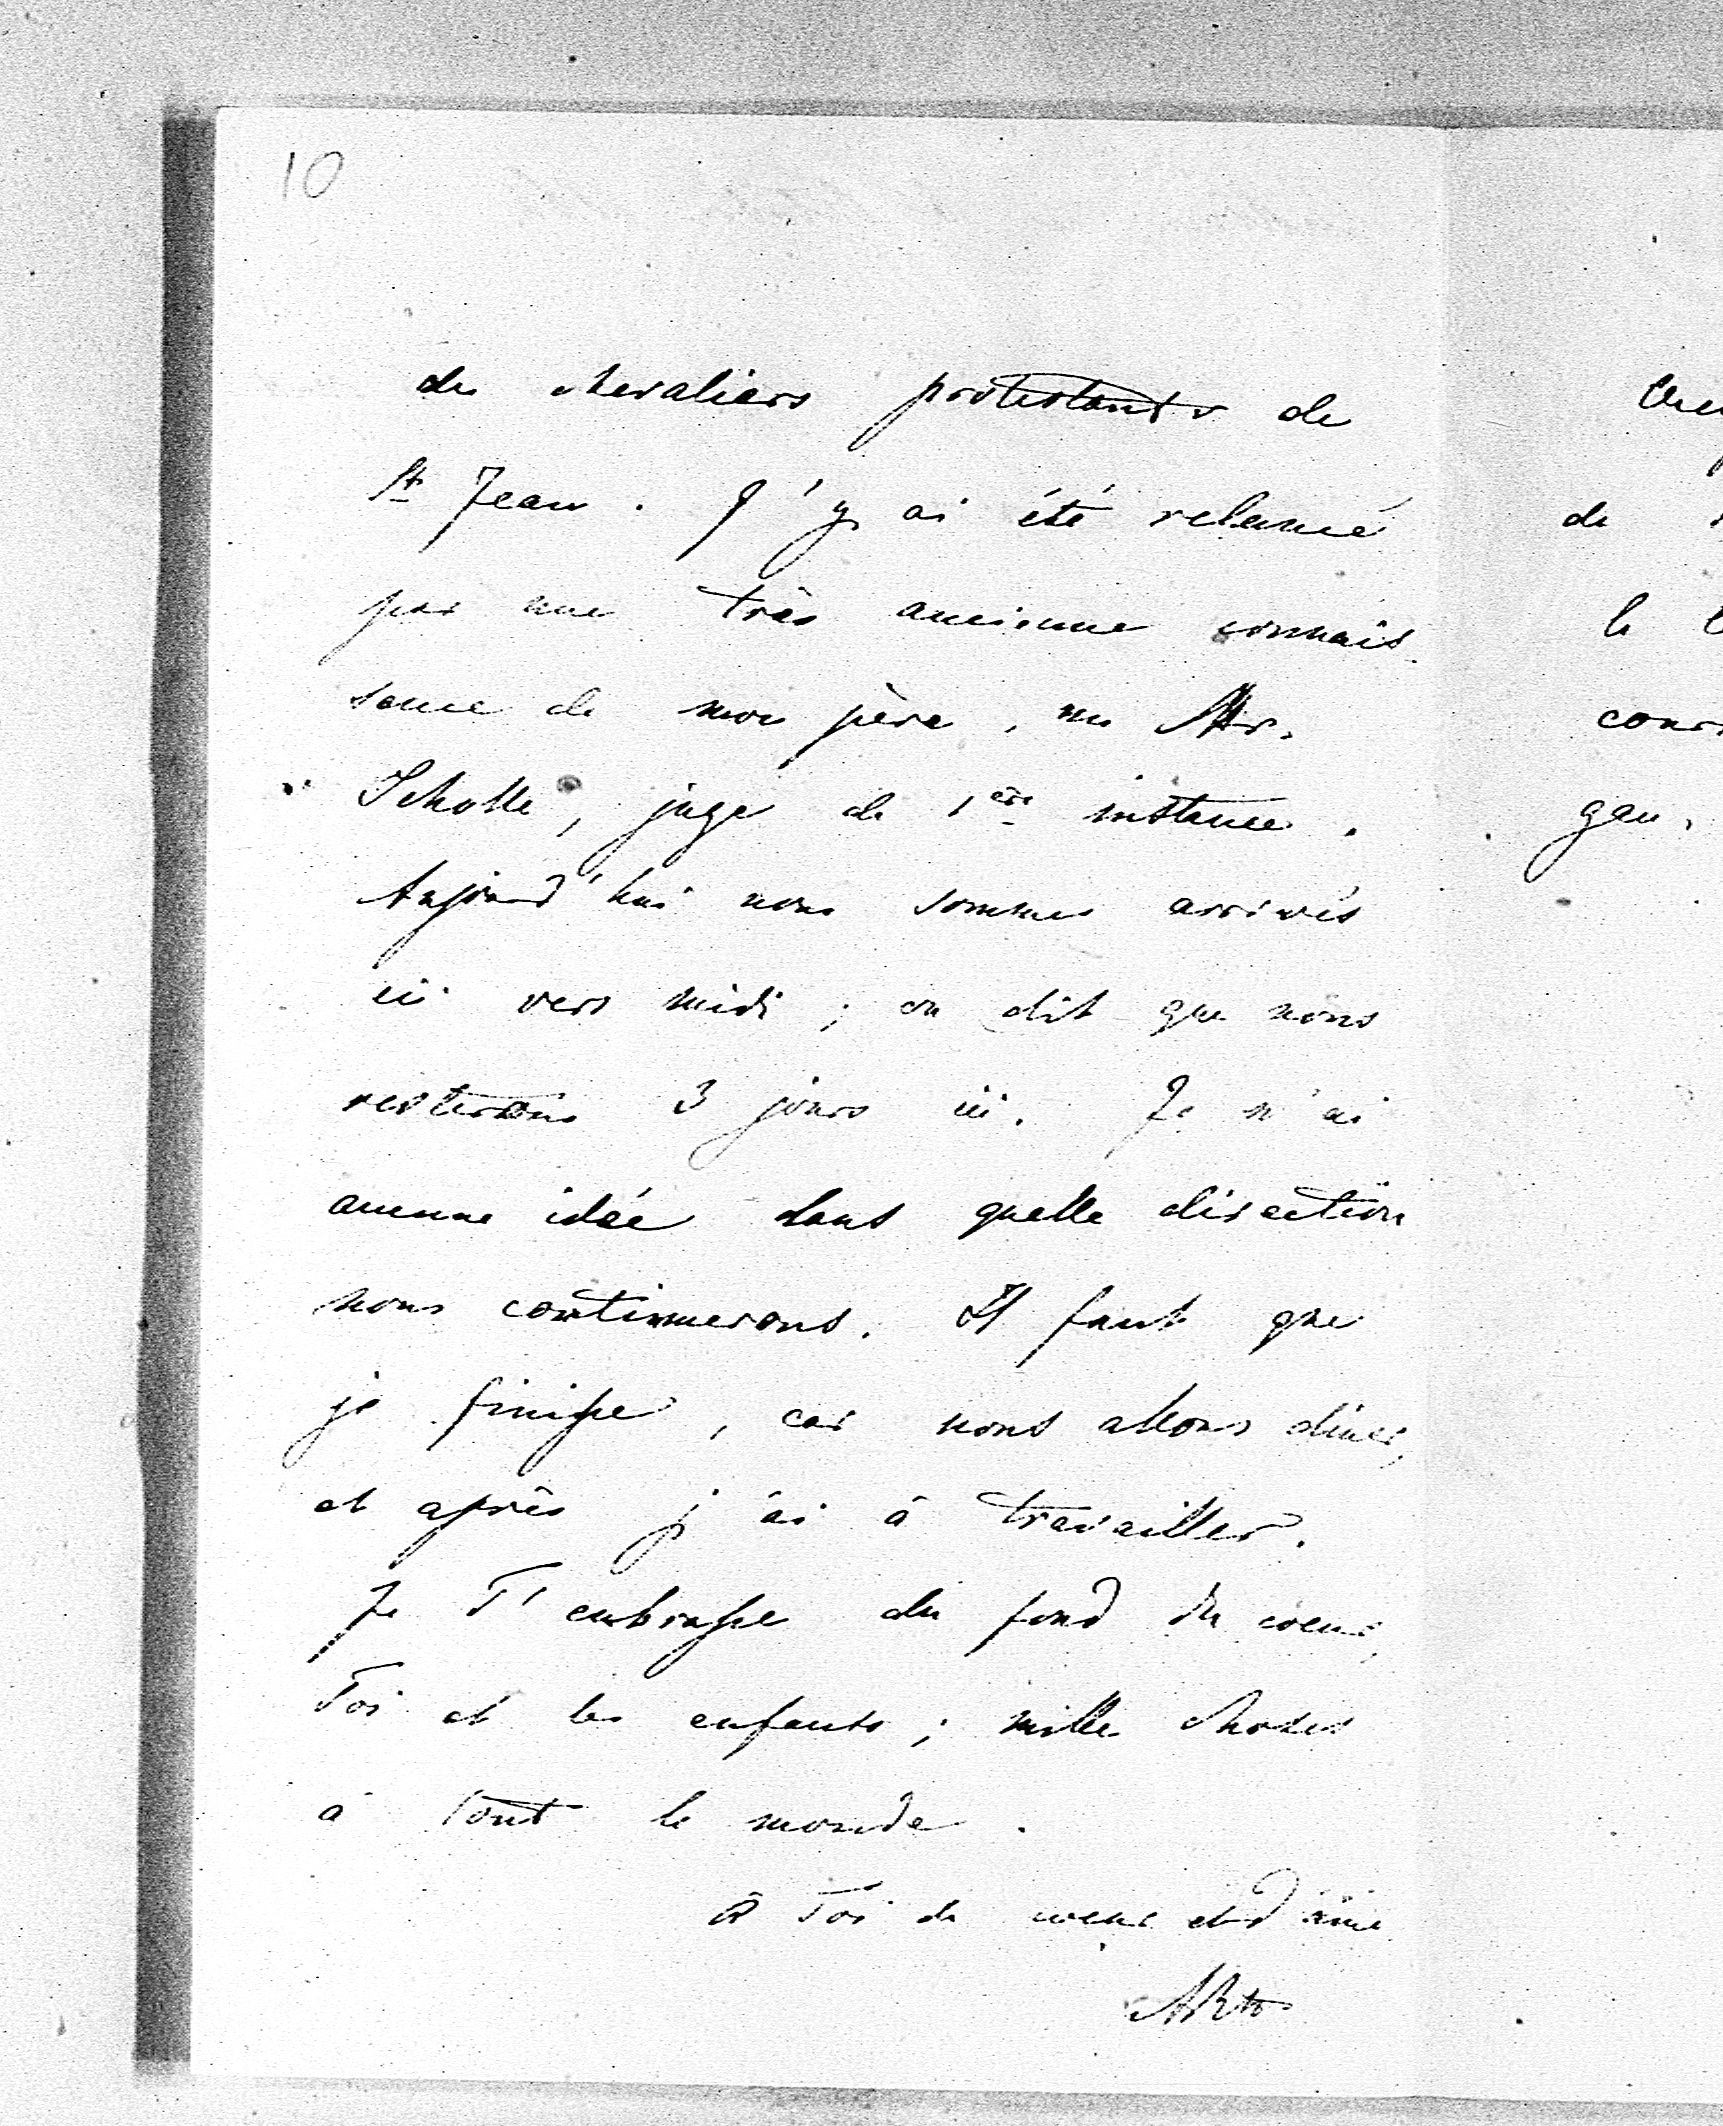 10
des chevaliers protestants de
St Jean. J'y ai été relancé
par une très ancienne connais-
sance de mon père, un Mr.
Scholle, juge de 1ère instance.
Aujourd'hui nous sommes arrivés
ici vers midi; on dit que nous
resterons 3 jours ici. Je n'ai
aucune idée dans quelle direction
nous continuerons. Il faut que
je finisse, car nous allons dîner,
et après j'ai à travailler.
Je T'embrasse du fond du coeur,
Toi et les enfants; mille choses
à tout le monde.
à Toi de coeur et d'âme
de
le
gen.